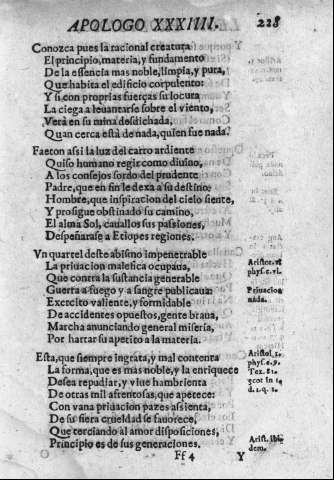 APOLOGO XXXIIII. 228
Conozca pues la racional creatura
El principio, materia, y fundamento
De la essencia mas noble, limpia, y pura,
Que habita el edificio corpulento:
Y si con proprias fuerças su locura
La ciega a leuantarse sobre el viento,
Verà en su mina desdichada,
Quan cerca està de nada, quien fue nada.
Faeton assi la luz del carro ardiente
Quiso humano regir como diuino,
A los consejos sordo del prudente
Padre, que en fin le dexa a su destino:
Hombre, que inspiracion del cielo siente,
Y prosigue obstinado su camino,
El alma Sol, cauallos sus passiones,
Despeñarase a Etiopes regiones.
Vn quartel deste abismo impenetrable
La priuacion malefica ocupaua,
Que contra la sustancia generable
Guerra a fuego y a sangre publicaua:
Exercito valiente, y formidable
De accidentes opuestos, gente braua,
Marcha anunciando general miseria,
Por hartar su apetito a la materia.
Esta, que siempre ingrata, y mal contenta
La forma, que es mas noble, y la enriquece
Desea repudiar, y viue hambrienta
De otras mil afrentosas, que apetece:
Con vana priuacion pazes assienta,
De su fiera crueldad se fauorece,
Que terciando al amor disposiciones,
Principio es de sus generaciones.
Aristot. vi
phys. c. vi.
Priuacion
nada.
Aristot. 1.
phys. c. 9.
Tex. 81.
scot in 14
d. 1. q. 1.
Arist. ibi
dem.
Ff 4 Y